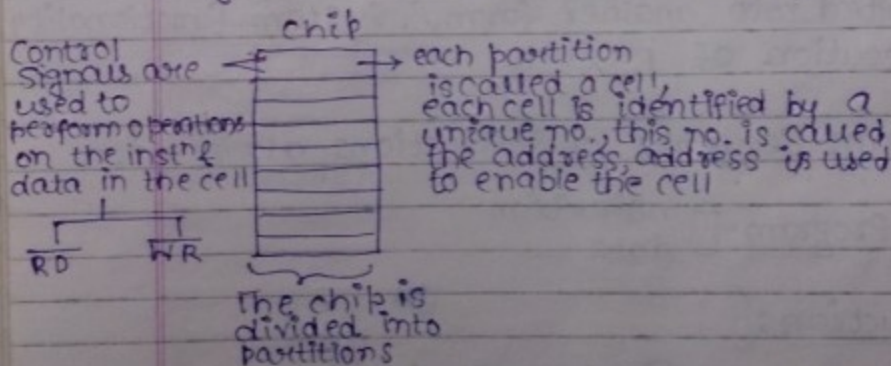 chip
Control
signals are
used to
perform operations
on the instn &
data in the cell
RD
WR
each partition
is called a cell,
each cell is identified by a
unique no., this no. is called
the address, address is used
to enable the cell
The chip is
divided into
partitions